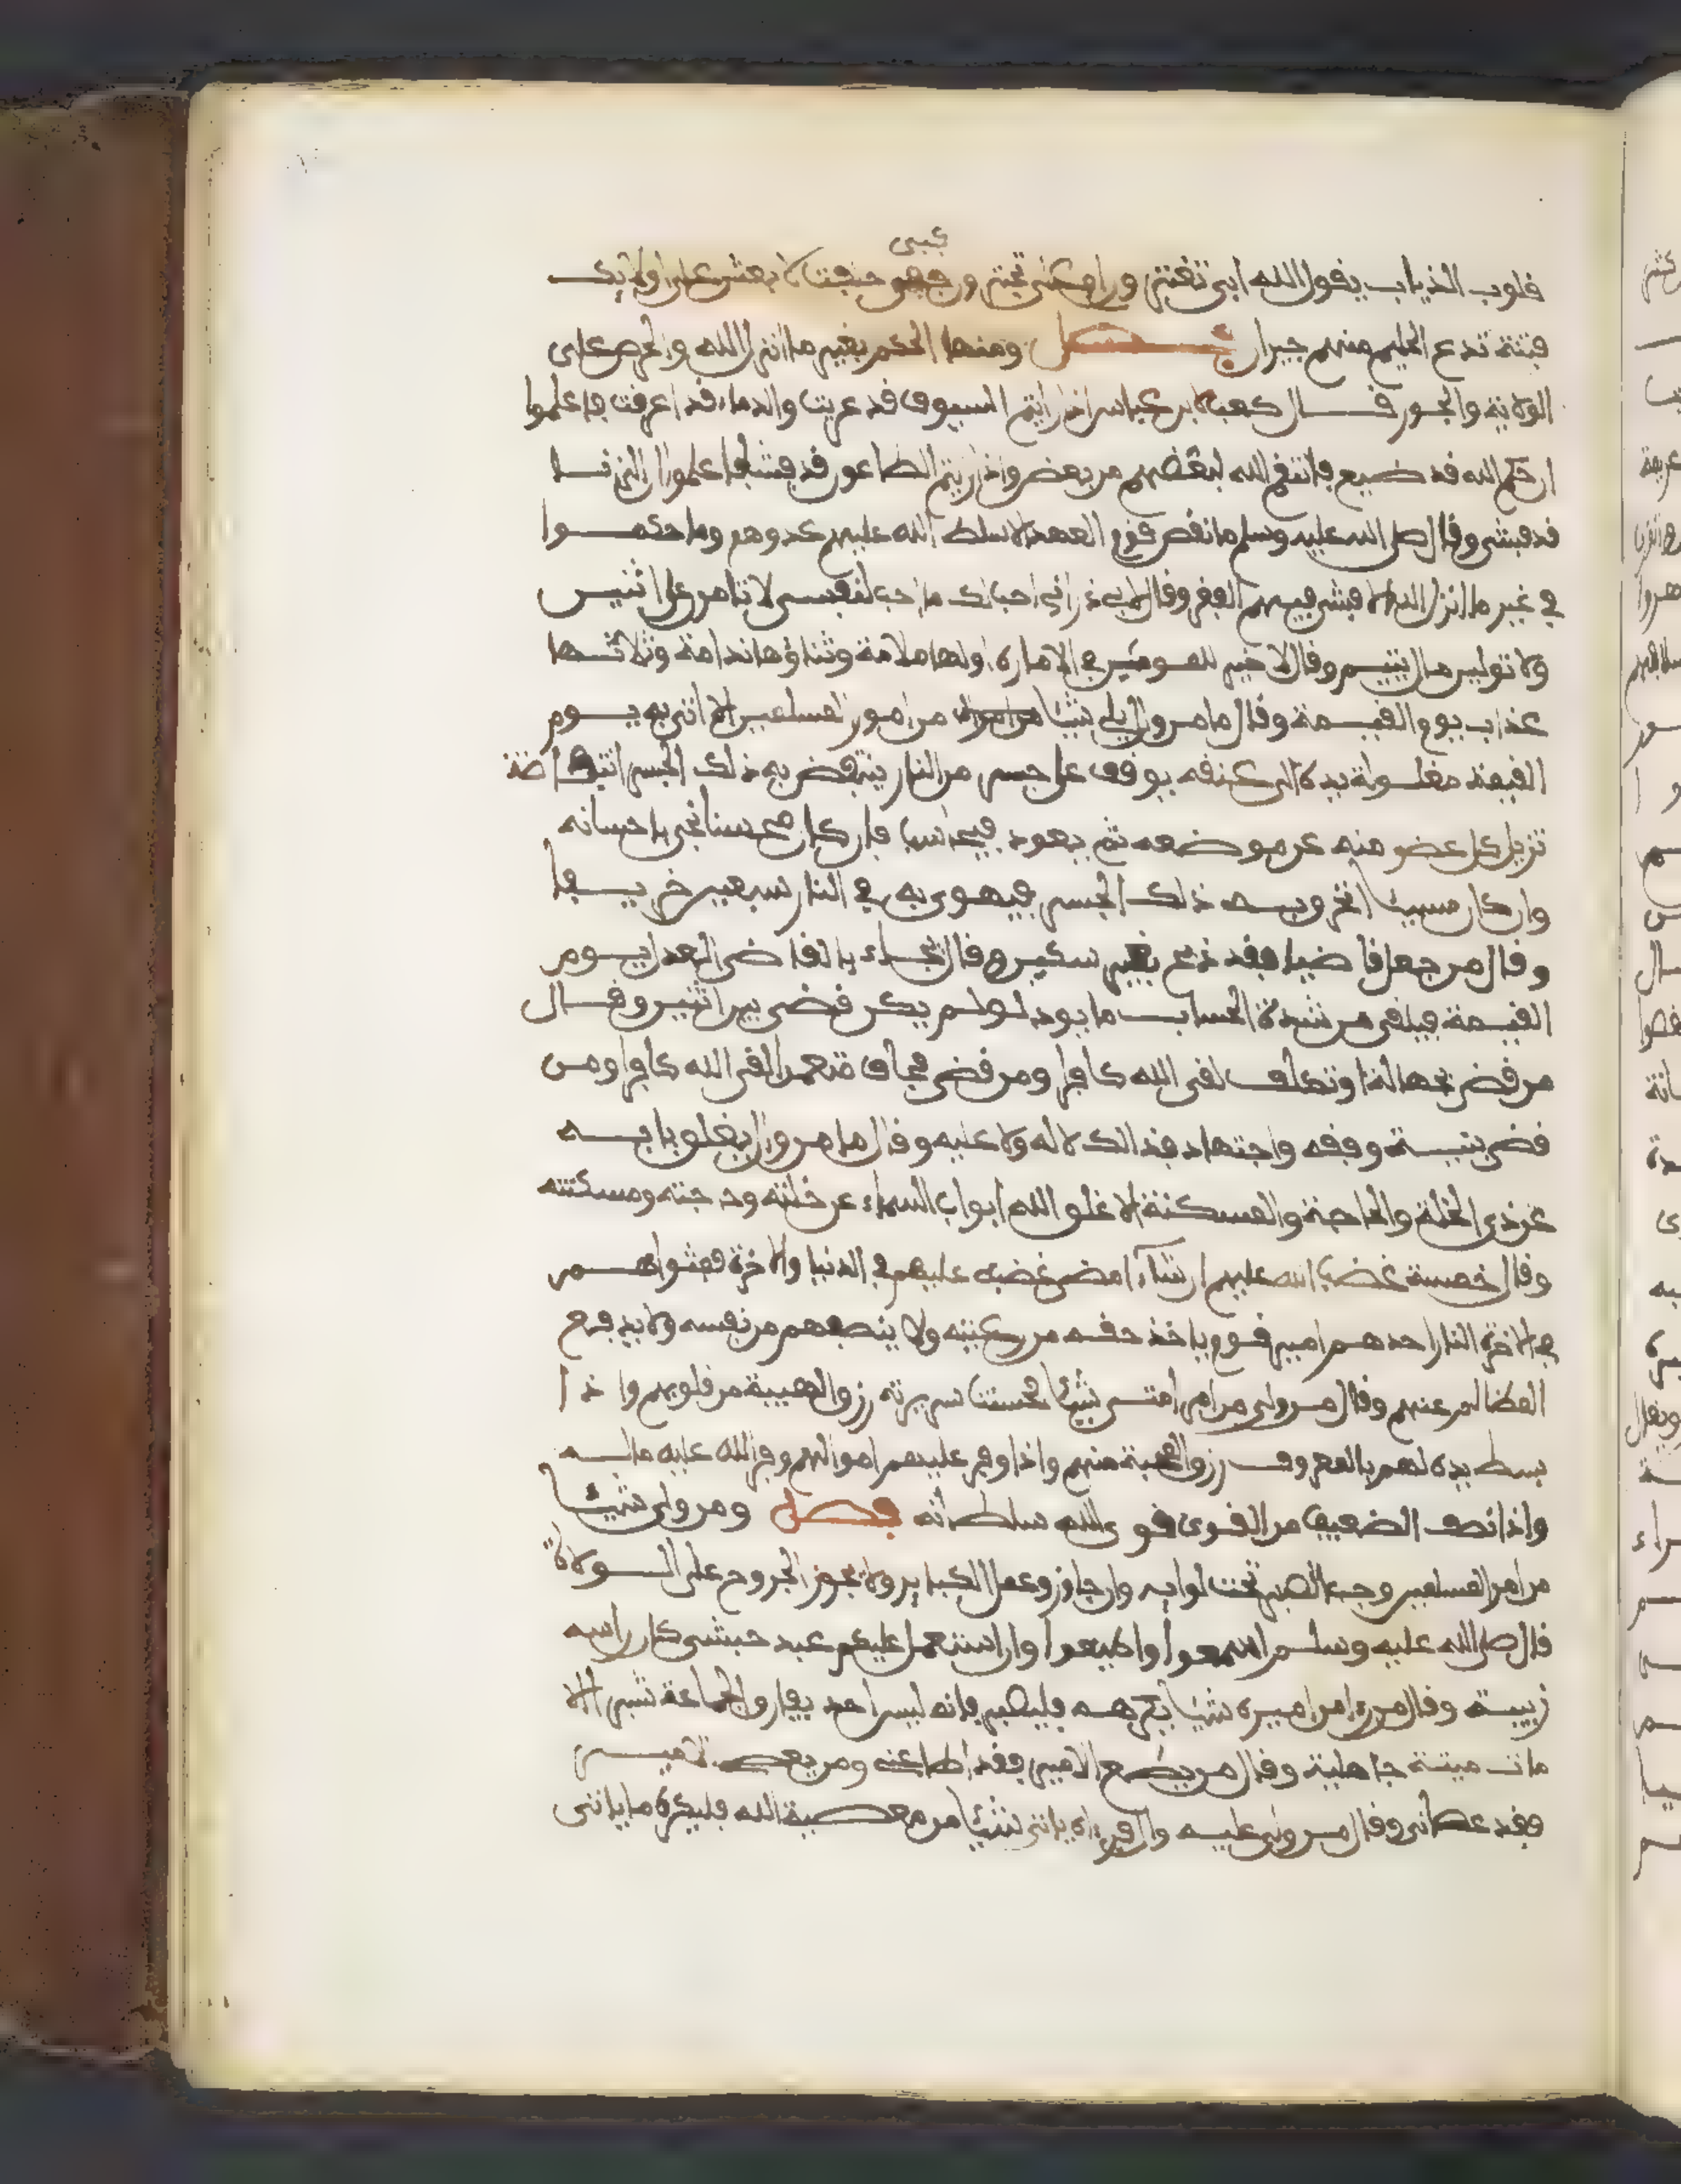 قلوب الذياب يقول الله ابي تغتر و را وعلى تجتر و حلفت لا بعثن على اولايك
فتنة تدع الحليم منهم حيران فصل ومنها الحكم بغير ما انزل الله والحرص على
الولاية والجور قال كعب لابن عباس اذا رايتم السيوف قد عريت والدماء قد اهرقت فاعلموا
ان حكم الله قد ضيع فانتقم الله لبعضهم من بعض واذا رايتم الطاعون قد فشا فاعلموا ان الزنا
قد فشى وقال صلى الله عليه وسلم ما نقض قوم العهد الا سلط الله عليهم عدوهم وما حكموا
في غير ما انزل الله الا فشى فيهم الفقر وقال لابي ذر اني احب لك ما احب لنفسي لا تامرن على اثنين
ولا تولين مال يتيم وقال لا خير للمومنين في الامارة اولها ملامة وثناؤها ندامة وثلاثها
عذاب يوم القيمة وقال ما من وال يلي شيئا من امور المسلمين الا اتي به يوم
القيمة مغلولة يده الى عنقه يوقف على جسر من النار ينتفض به ذلك الجسر انتفاضة
تزيل كل عضو منه عن موضعه ثم يعود فيحاسب فان كان محسنا نجى باحسانه
وان كان مسيئا انخرق به ذلك الجسر فيهوى به في النار سبعين خريفا
وقال من جعل قاضيا فقد ذبح بغير سكين وقال يجاء بالقاضي العدل يوم
القيمة فيلقى من شدة الحساب ما يود لو لم يكن قضى بين اثنين وقال
من قضى بجهالة او تكلف لقي الله كافرا ومن قضى فحاف متعمدا لقي الله كافرا ومن
قضى بنية وفقه واجتهاد فذالك لا له ولا عليه وقال ما من وال يغلق بابه
عن ذي الخلة والحاجة والمسكنة الا غلق الله ابواب السماء عن خلته وحاجته ومسكنته
وقال خمسة غضب الله عليهم ان شاء امضى غضبه عليهم في الدنيا والاخرة فمثواهم
في الاخرة النار احدهم امير قوم ياخذ حقه من رعيته ولا ينصفهم من نفسه ولا يدفع
المظالم عنهم وقال من ولي من امر امتي شيئا فحسنت سريرته رزق الهيبة من قلوبهم واذا
بسط يده لهم بالمعروف رزق المحبة منهم واذا وفر عليهم اموالهم وفر الله عليه ماله
واذا انصف الضعيف من القوي قوى الله سلطانه فصل ومن ولي شيئا
من امر المسلمين وجب الصبر تحت لوايه وان جار وعمل الكباير ولا يجوز الخروج على الولاة
قال صلى الله عليه وسلم اسمعوا واطيعوا وان استعمل عليكم عبد حبشي كان راسه
زبيبة وقال من رءا من اميره شيئا يكرهه فليصبر فانه ليس احد يفارق الجماعة شبرا الا
مات ميتة جاهلية وقال من يطع الامير فقد اطاعني ومن يعص الامير
فقد عصاني وقال من ولي عليه وال فرءاه ياتي شيئا من معصية الله فليكره ما ياتي